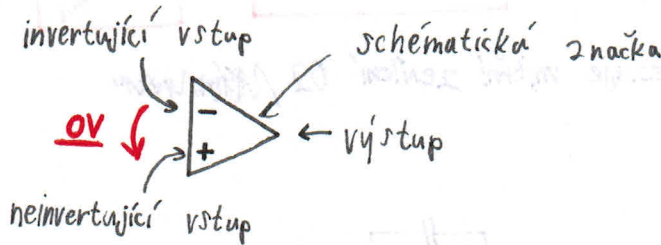 invertující vstup
schématická značka
−
0V
+
← výstup
neinvertující vstup